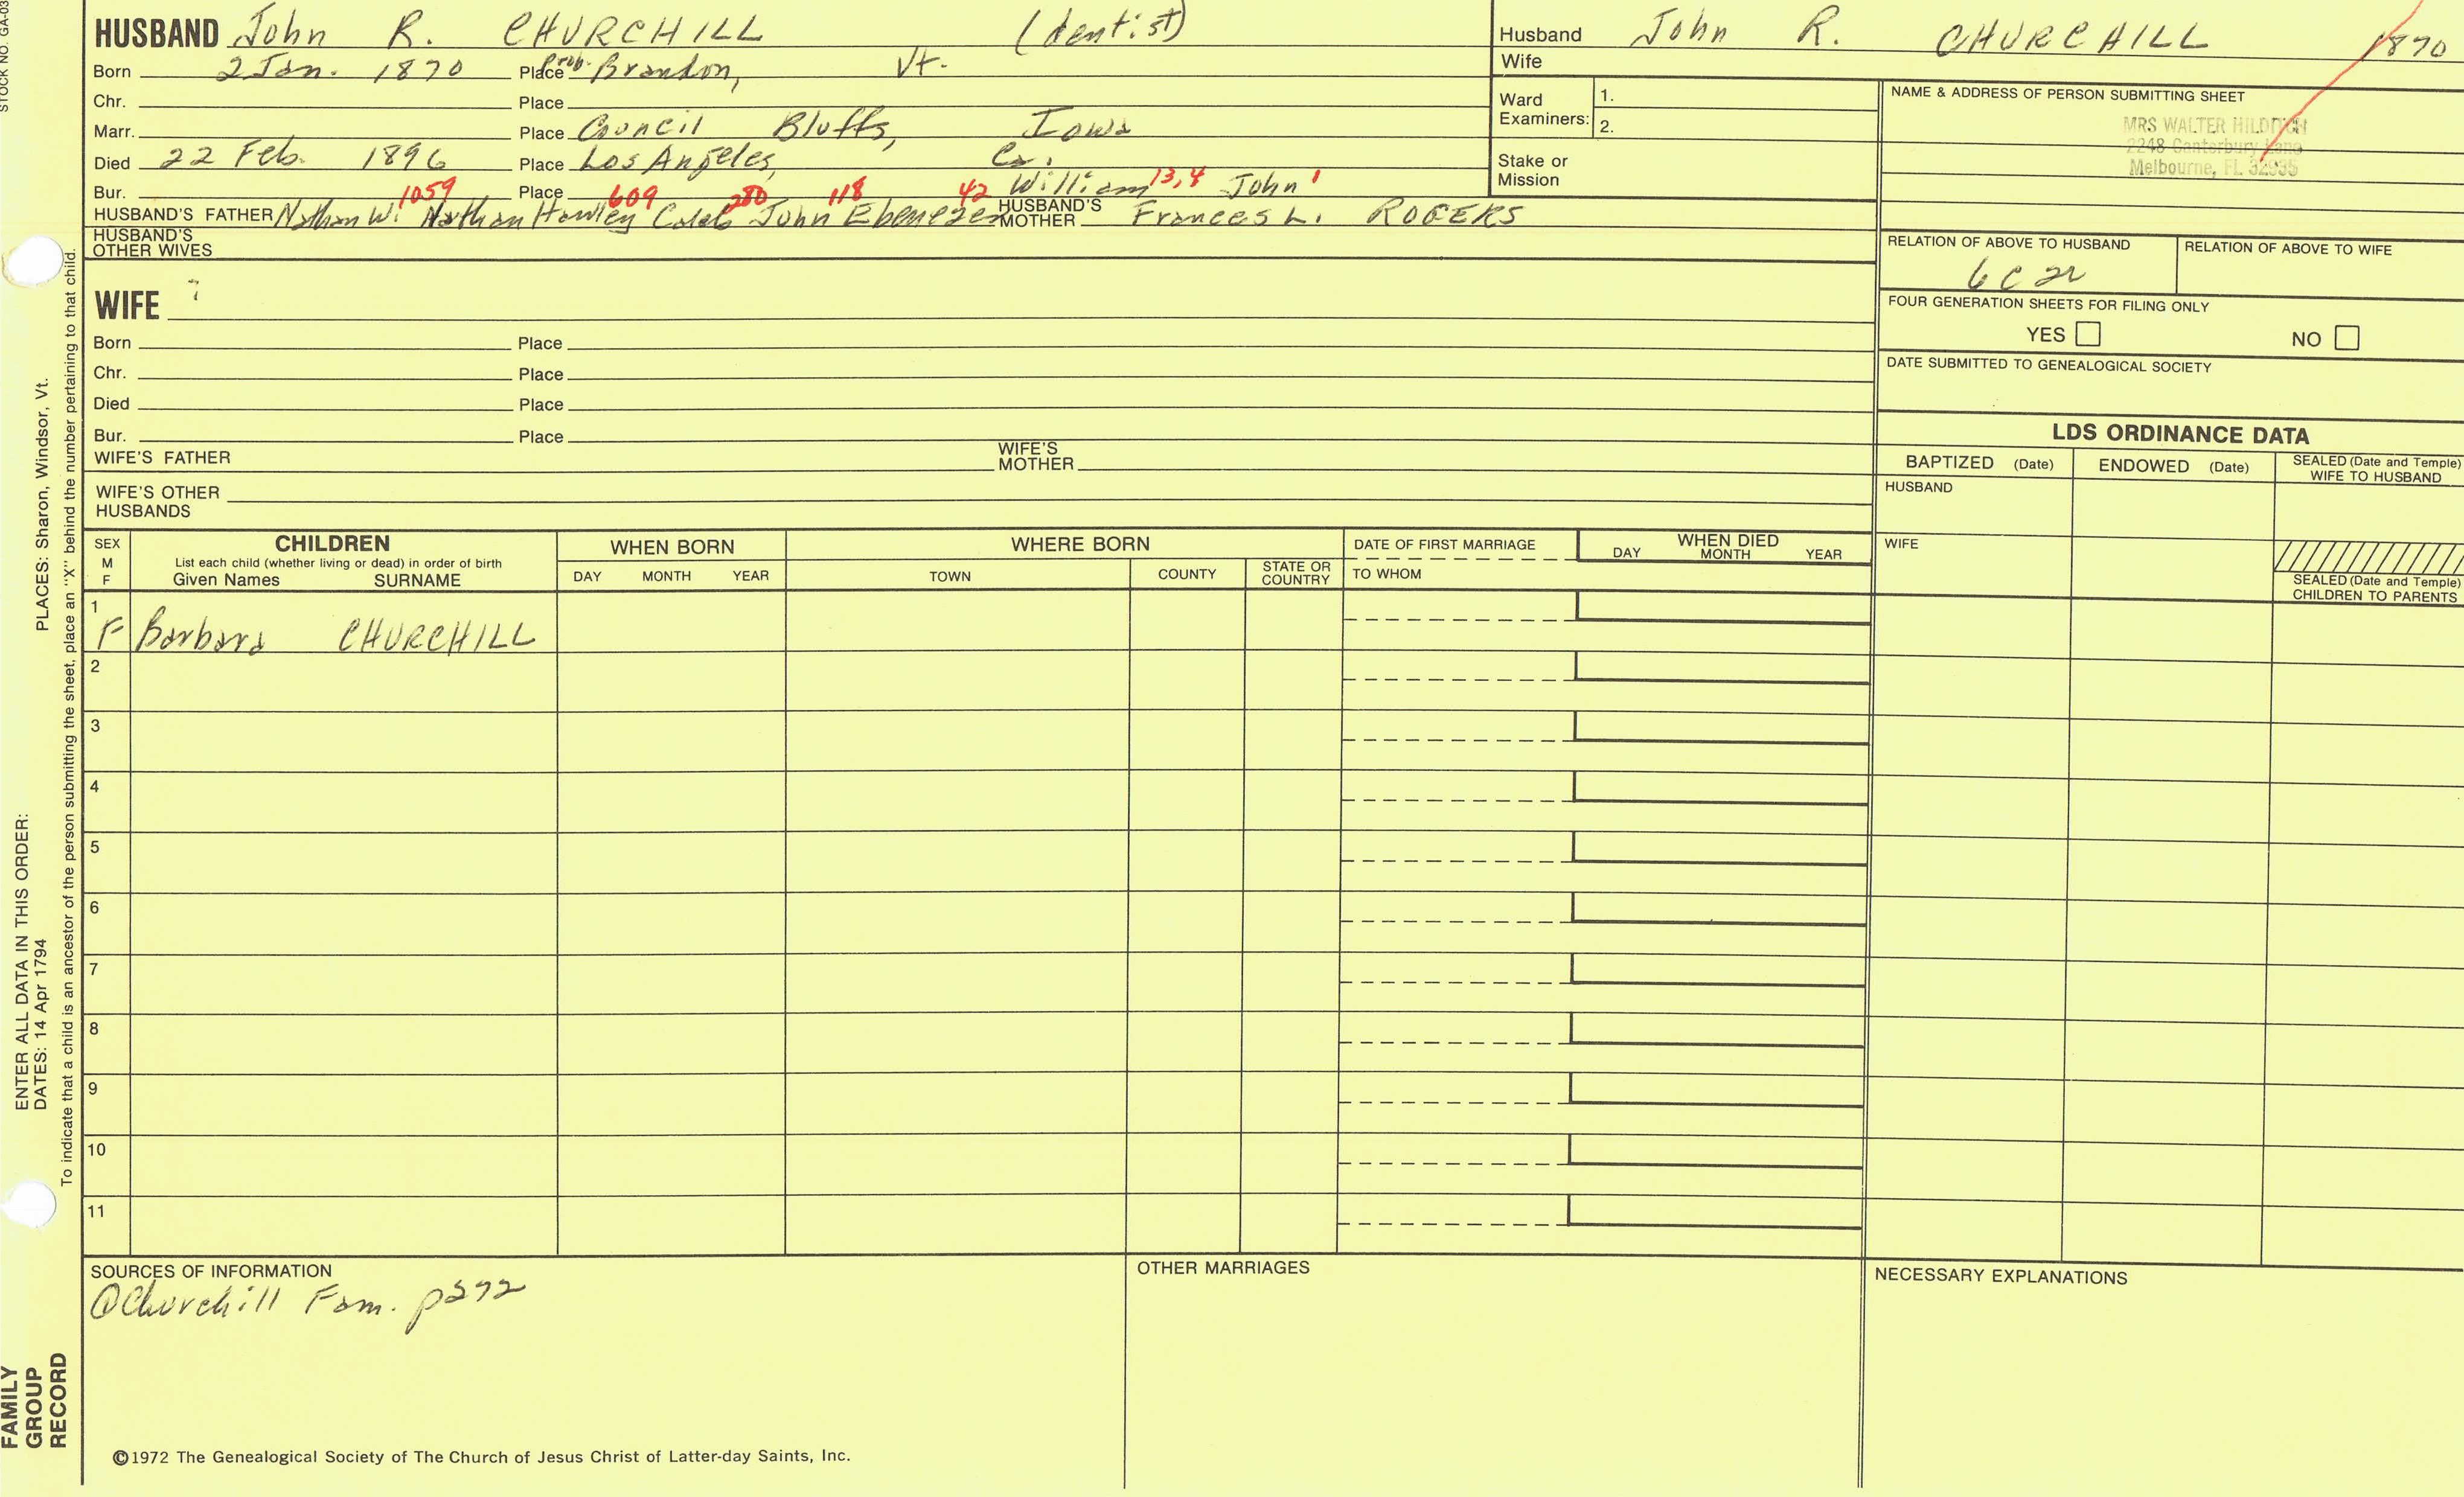 STOCK NO. GA-03
HUSBAND John R. CHURCHILL (dentist)
Born 2 Jan. 1870 Place Prob. Brandon, Vt.
Chr. Place
Marr. Place Council Bluffs, Iowa
Died 22 Feb. 1896 Place Los Angeles, Ca.
Bur. Place
1059 609 280 118 42 William 13, 4 John 1
HUSBAND'S FATHER Nathan W. Nathan Hawley Caleb John Ebenezer HUSBAND'S MOTHER Frances L. ROGERS
HUSBAND'S OTHER WIVES
WIFE ?
Born Place
Chr. Place
Died Place
Bur. Place
WIFE'S FATHER WIFE'S MOTHER
WIFE'S OTHER HUSBANDS
Husband John R. CHURCHILL 1870
Wife
Ward Examiners: 1.
2.
Stake or Mission
NAME & ADDRESS OF PERSON SUBMITTING SHEET
MRS WALTER HILDRICH
2248 Canterbury Lane
Melbourne, FL 32935
RELATION OF ABOVE TO HUSBAND RELATION OF ABOVE TO WIFE
6C2r
FOUR GENERATION SHEETS FOR FILING ONLY
YES NO
DATE SUBMITTED TO GENEALOGICAL SOCIETY
LDS ORDINANCE DATA
BAPTIZED (Date) ENDOWED (Date) SEALED (Date and Temple) WIFE TO HUSBAND
HUSBAND
WIFE
SEALED (Date and Temple) CHILDREN TO PARENTS
SEX M F
CHILDREN
List each child (whether living or dead) in order of birth
Given Names SURNAME
WHEN BORN
DAY MONTH YEAR
WHERE BORN
TOWN COUNTY STATE OR COUNTRY
DATE OF FIRST MARRIAGE
TO WHOM
WHEN DIED
DAY MONTH YEAR
1
F Barbara CHURCHILL
2
3
4
5
6
7
8
9
10
11
SOURCES OF INFORMATION
① Churchill Fam. p272
OTHER MARRIAGES
NECESSARY EXPLANATIONS
©1972 The Genealogical Society of The Church of Jesus Christ of Latter-day Saints, Inc.
FAMILY GROUP RECORD
ENTER ALL DATA IN THIS ORDER:
DATES: 14 Apr 1794 PLACES: Sharon, Windsor, Vt.
To indicate that a child is an ancestor of the person submitting the sheet, place an "X" behind the number pertaining to that child.